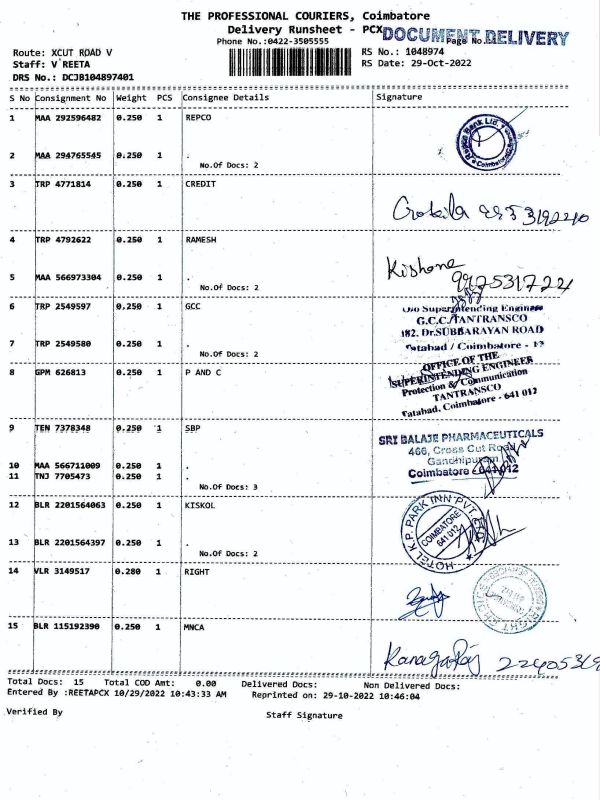 THE PROFESSIONAL COURIERS, Coimbatore
Delivery Runsheet - PCX
DOCUMENT DELIVERY
Phone No.:0422-3505555
Page No.
Route: XCUT ROAD V
RS No.: 1048974
Staff: V REETA
RS Date: 29-Oct-2022
DRS No.: DCJB104897401
S No Consignment No Weight PCS Consignee Details Signature
1 MAA 292596482 0.250 1 REPCO
Repco Bank Ltd.
Coimbatore
2 MAA 294765545 0.250 1 .
No.Of Docs: 2
3 TRP 4771814 0.250 1 CREDIT
4 TRP 4792622 0.250 1 RAMESH
Kishone
5 MAA 566973304 0.250 1 .
No.Of Docs: 2
6 TRP 2549597 0.250 1 GCC
O/o Superintending Engineer
G.C.C./TANTRANSCO
182, Dr.SUBBARAYAN ROAD
Tatabad / Coimbatore - 12
7 TRP 2549580 0.250 1 .
No.Of Docs: 2
8 GPM 626813 0.250 1 P AND C
OFFICE OF THE
SUPERINTENDING ENGINEER
Protection & Communication
TANTRANSCO
Tatabad, Coimbatore - 641 012
9 TEN 7378348 0.250 1 SBP
SRI BALAJE PHARMACEUTICALS
466, Cross Cut Road
Gandhipuram
Coimbatore - 641 012
10 MAA 566711009 0.250 1 .
11 TNJ 7705473 0.250 1 .
No.Of Docs: 3
12 BLR 2201564063 0.250 1 KISKOL
HOTEL K.P. PARK INN PVT. LTD
COIMBATORE
641 012
13 BLR 2201564397 0.250 1 .
No.Of Docs: 2
14 VLR 3149517 0.280 1 RIGHT
15 BLR 115192390 0.250 1 MNCA
Kanagaraj
Total Docs: 15 Total COD Amt: 0.00 Delivered Docs: Non Delivered Docs:
Entered By :REETAPCX 10/29/2022 10:43:33 AM Reprinted on: 29-10-2022 10:46:04
Verified By
Staff Signature